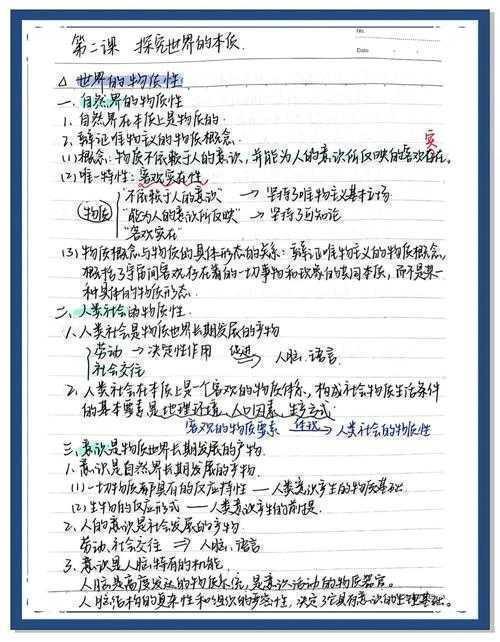 第二课 探究世界的本质.
No.
Date
△ 世界的物质性
一. 自然界的物质性
1. 自然界在本质上是物质的.
2. 辩证唯物主义的物质概念.
实
(1) 概念: 物质不依赖于人的意识, 并能为人的意识所反映的客观存在.
(2) 唯一特性: 客观实在性
物质
"不依赖于人的意识" → 坚持了唯物主义基本立场
"能为人的意识所反映" → 坚持了可知论
"客观实在"
(3) 物质概念与物质的具体形态的关系: 辩证唯物主义的物质概念,
概括了宇宙间客观存在着的一切事物和现象的共同本质, 而不是某一
种具体的物质形态.
二. 人类社会的物质性.
1. 人类社会是物质世界长期发展的产物
劳动 → 决定性作用 促进 人脑、语言.
社会交往
2. 人类社会在本质上是一个客观的物质体系, 构成社会物质生活条件
的基本要素是地理环境、人口因素、生产方式.
客观的物质要素 体现 → 人类社会的物质性
三. 意识是物质世界长期发展的产物.
1. 意识是自然界长期发展的产物.
(1) 一切物质都具有的反应特性 — 人类意识产生的物质基础.
(2) 生物的反应形式 — 人类意识产生的前提.
2. 人的意识是社会发展的产物
劳动、社会交往 ⇒ 人脑、语言
3. 意识是人脑特有的机能.
人脑是高度发达的物质系统, 是意识活动的物质器官.
人脑结构的复杂性和组织的严密性, 决定了它具有意识的生理基础.